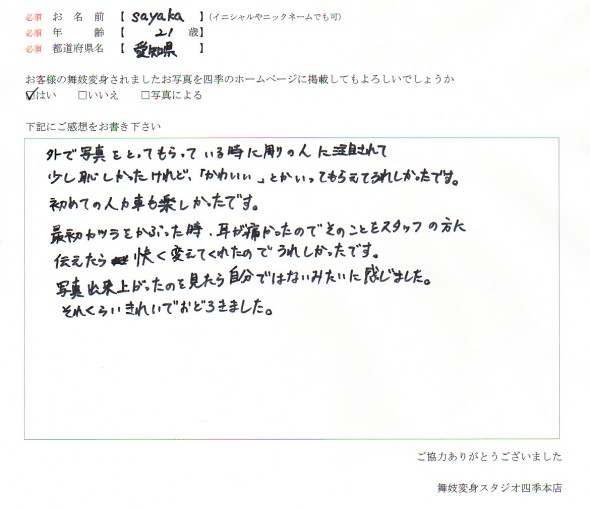 必須 お 名 前 【 sayaka 】 (イニシャルやニックネームでも可)
必須 年 齢 【 21 歳】
必須 都道府県名 【 愛知県 】
お客様の舞妓変身されましたお写真を四季のホームページに掲載してもよろしいでしょうか
☑はい □いいえ □写真による
下記にご感想をお書き下さい
外で写真をとってもらっている時に周りの人に注目されて
少し恥しかったけれど、「かわいい」とかいってもらえてうれしかったです。
初めての人力車も楽しかったです。
最初カツラをかぶった時、耳が痛かったのでそのことをスタッフの方に
伝えたら 快く変えてくれたのでうれしかったです。
写真出来上がったのを見たら自分ではないみたいに感じました。
それくらいきれいでおどろきました。
ご協力ありがとうございました
舞妓変身スタジオ四季本店